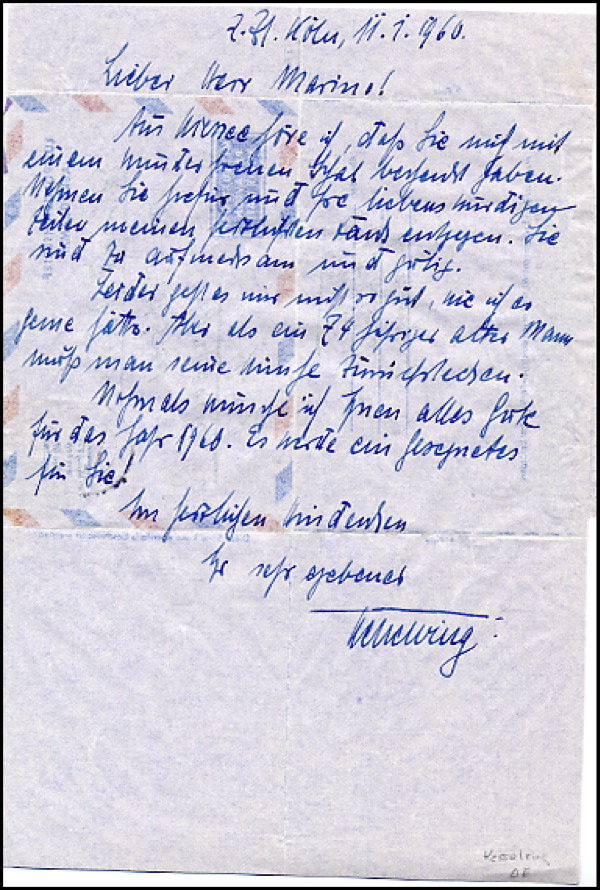 z. Zt. Köln, 11.1.1960.
Lieber Herr Marino!
Aus Wiessee höre ich, daß Sie mich mit
einem wunderschönen Schal bedacht haben.
Nehmen Sie hiefür und Ihre liebenswürdigen
Zeilen meinen herzlichsten Dank entgegen. Sie
sind zu aufmerksam und gütig.
Leider geht es mir nicht so gut, wie ich es
gerne hätte. Aber als ein 74 jähriger alter Mann
muß man seine Wünsche zurückstecken.
Nochmals wünsche ich Ihnen alles Gute
für das Jahr 1960. Es werde ein gesegnetes
für Sie!
In herzlichem Gedenken
Ihr sehr ergebener
Kesselring
Kesselring